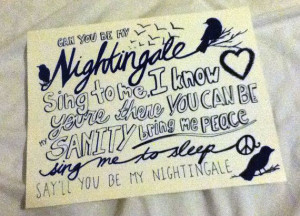 CAN YOU BE MY
Nightingale
Sing to me, I know
you're there YOU CAN BE
my SANITY bring me PEACE
sing me to sleep
SAY'LL YOU BE MY NIGHTINGALE